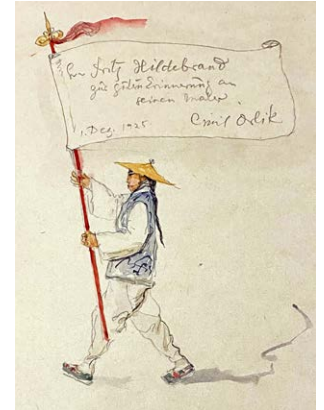 Fritz Hildebrand
zur guten Erinnerung an
seinen Maler.
1. Dez. 1925 Emil Orlik